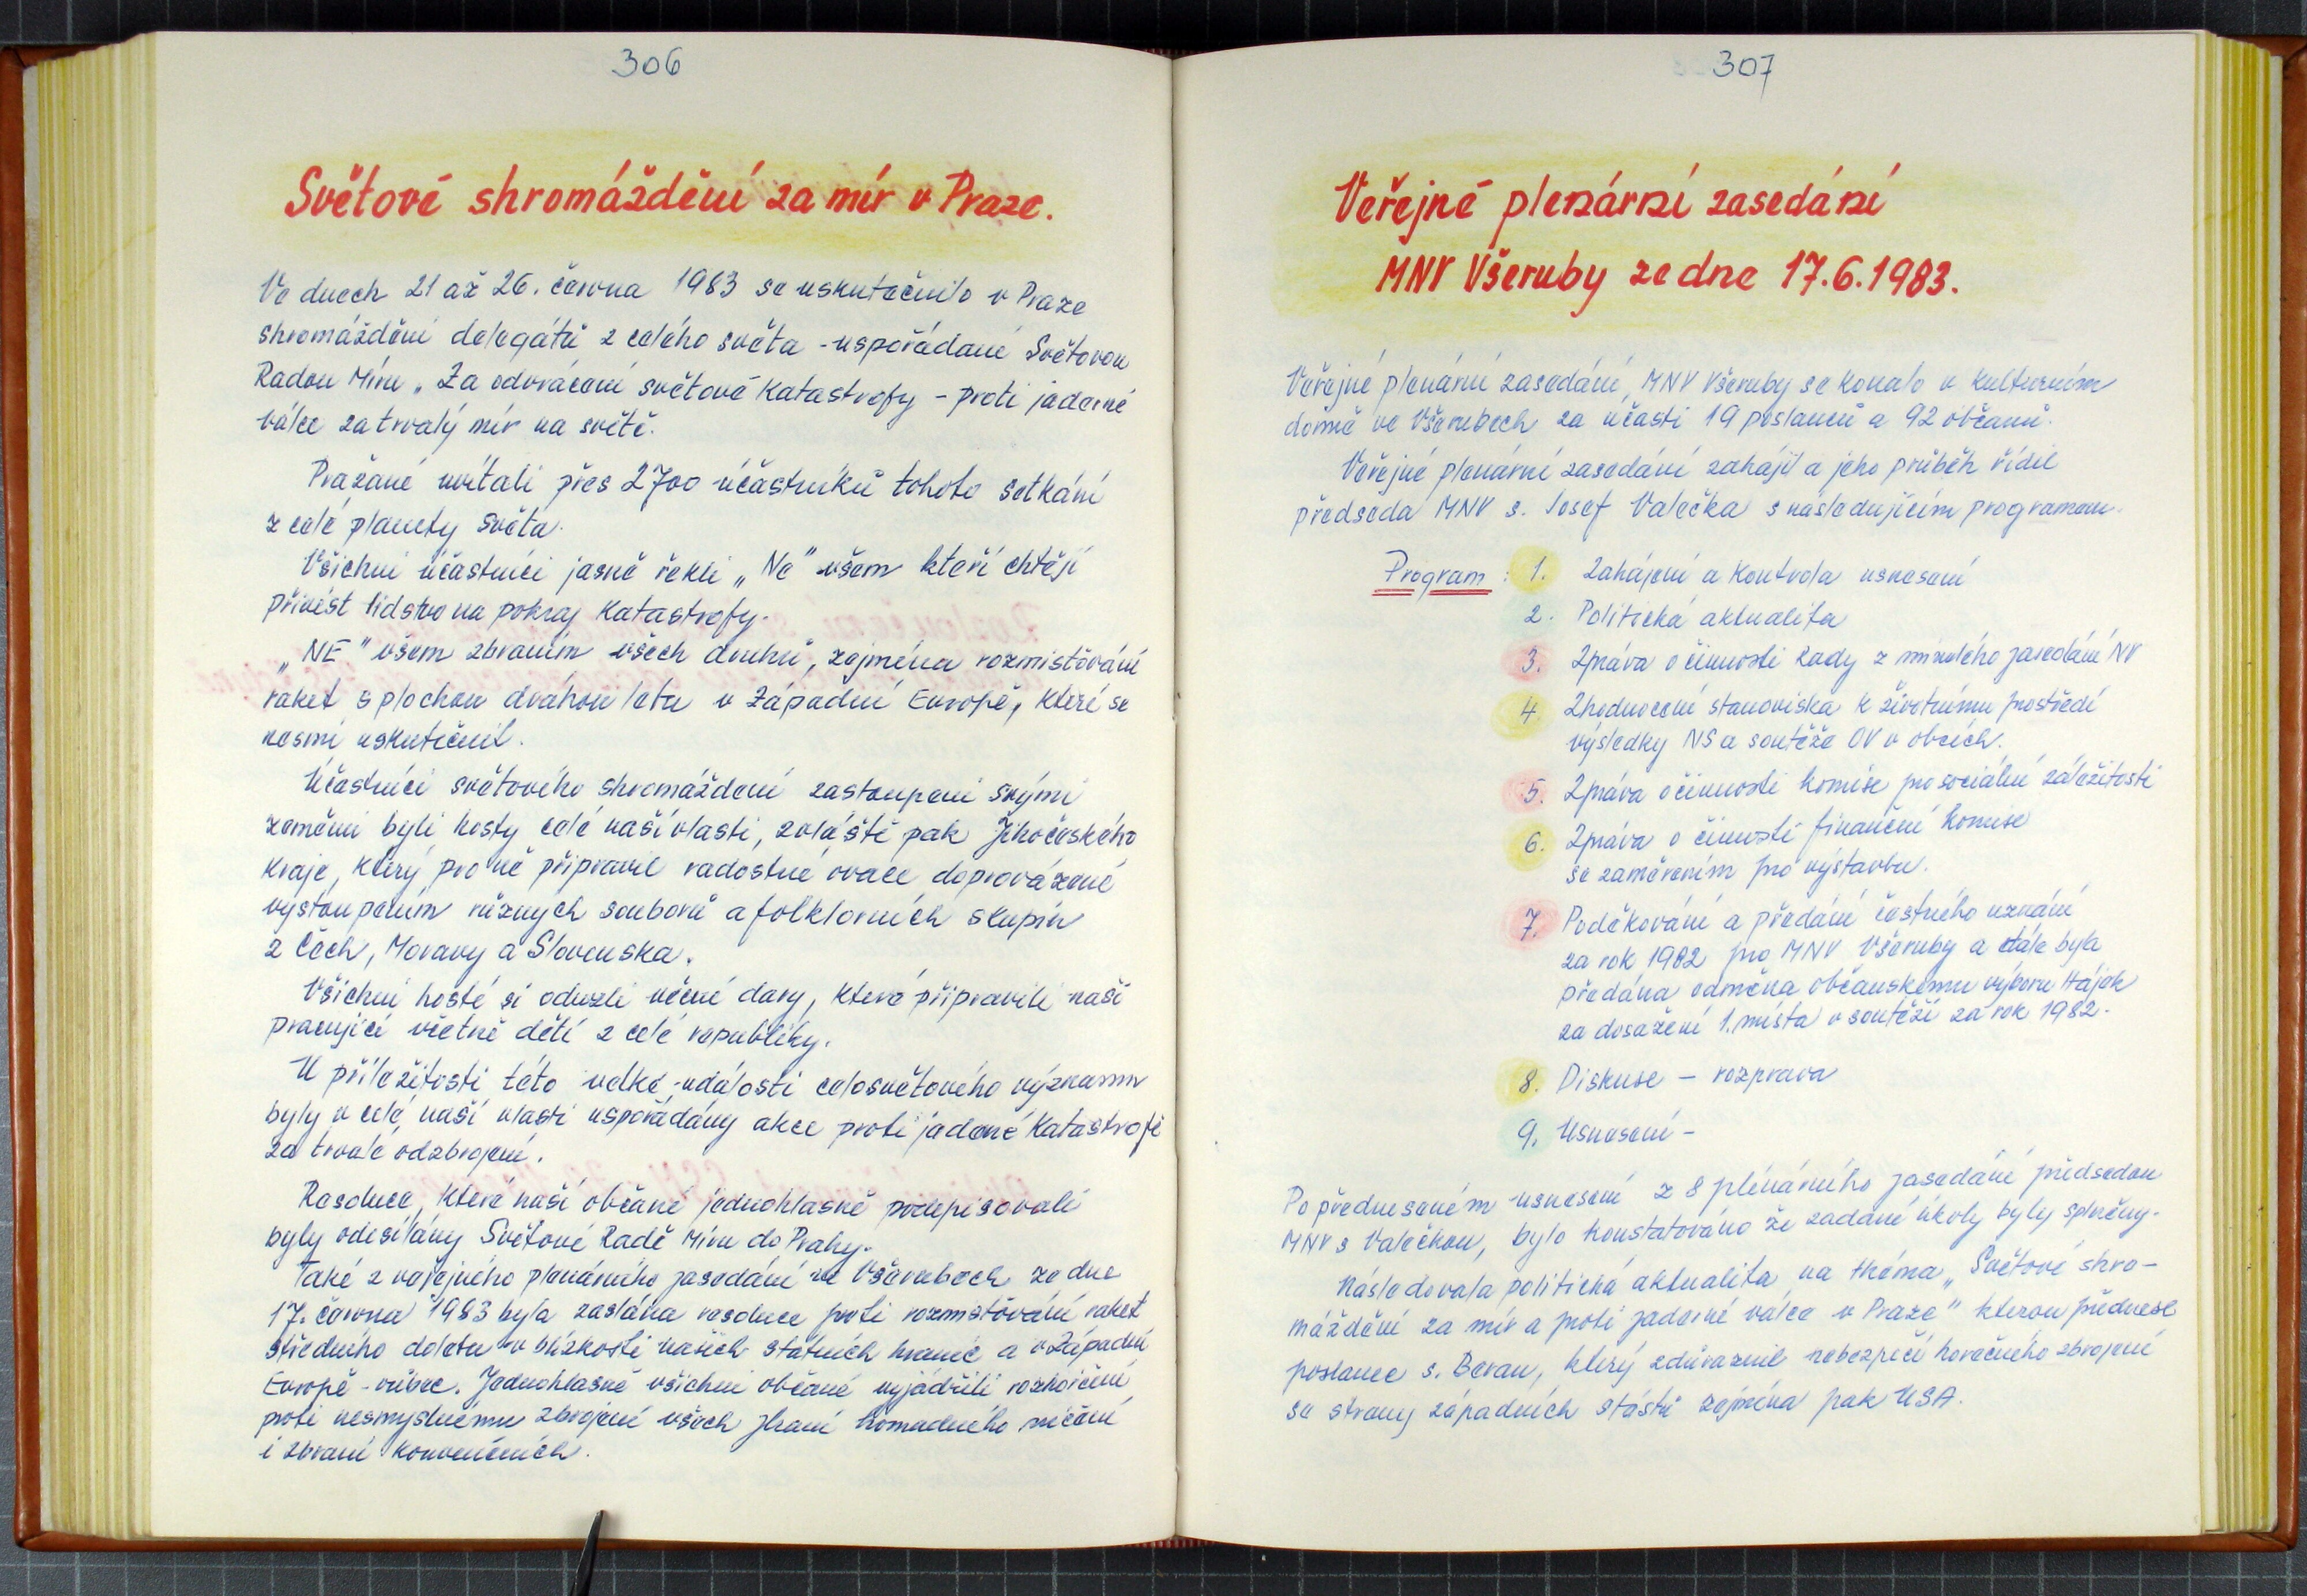 306
Světové shromáždění za mír v Praze.
Ve dnech 21 až 26. června 1983 se uskutečnilo v Praze
shromáždění delegátů z celého světa - uspořádané Světovou
Radou Míru „Za odvrácení světové katastrofy - proti jaderné
válce za trvalý mír na světě.
Pražané uvítali přes 2700 účastníků tohoto setkání
z celé planety světa.
Všichni účastníci jasně řekli „Ne" všem kteří chtějí
přivést lidstvo na pokraj katastrofy.
„NE" všem zbraním všech druhů, zejména rozmisťování
raket s plochou dráhou letu v Západní Evropě, které se
nesmí uskutečnit.
Účastníci světového shromáždení zastoupeni svými
zeměmi byli hosty celé naší vlasti, zvláště pak Jihočeského
kraje, který pro ně připravil radostné ovace doprovázené
vystoupením různých souborů a folklorních skupin
z Čech, Moravy a Slovenska.
Všichni hosté si odvezli věcné dary, které připravili naši
pracující včetně dětí z celé republiky.
U příležitosti této velké události celosvětového významu
byly v celé naší vlasti uspořádány akce proti jaderné katastrofě
za trvalé odzbrojení.
Resoluce, které naši občané jednohlasně podepisovali
byly odesílány Světové Radě Míru do Prahy.
Také z veřejného plenárního zasedání ve Všerubech ze dne
17. června 1983 byla zaslána resoluce proti rozmisťování raket
středního doletu v blízkosti našich státních hranic a v Západní
Evropě - vůbec. Jednohlasně všichni občané vyjádřili rozhořčení
proti nesmyslnému zbrojení všech zbraní hromadného ničení
i zbraní konvenčních.
307
Veřejné plenární zasedání
MNV Všeruby ze dne 17.6.1983.
Veřejné plenární zasedání, MNV Všeruby se konalo v kulturním
domě ve Všerubech za účasti 19 poslanců a 92 občanů.
Veřejné plenární zasedání zahájil a jeho průběh řídil
předseda MNV s. Josef Valečka s následujícím programem.
Program: 1. Zahájení a kontrola usnesení
2. Politická aktualita
3. Zpráva o činnosti Rady z minulého zasedání NV
4. Zhodnocení stanoviska k životnímu prostředí
výsledky NS a soutěže OV v obcích.
5. Zpráva o činnosti komise pro sociální záležitosti
6. Zpráva o činnosti finanční komise
se zaměřením pro výstavbu.
7. Poděkování a předání čestného uznání
za rok 1982 pro MNV Všeruby a dále byla
předána odměna občanskému výboru Hájek
za dosažení 1. místa v soutěži za rok 1982.
8. Diskuse - rozprava
9. Usnesení -
Po předneseném usnesení z 8 plenárního zasedání předsedou
MNV s Valečkou, bylo konstatováno že zadané úkoly byly splněny.
Následovala politická aktualita na théma „Světové shro-
máždění za mír a proti jaderné válce v Praze" kterou přednesl
poslanec s. Beran, který zdůraznil nebezpečí horečného zbrojení
se strany západních států zejména pak USA.